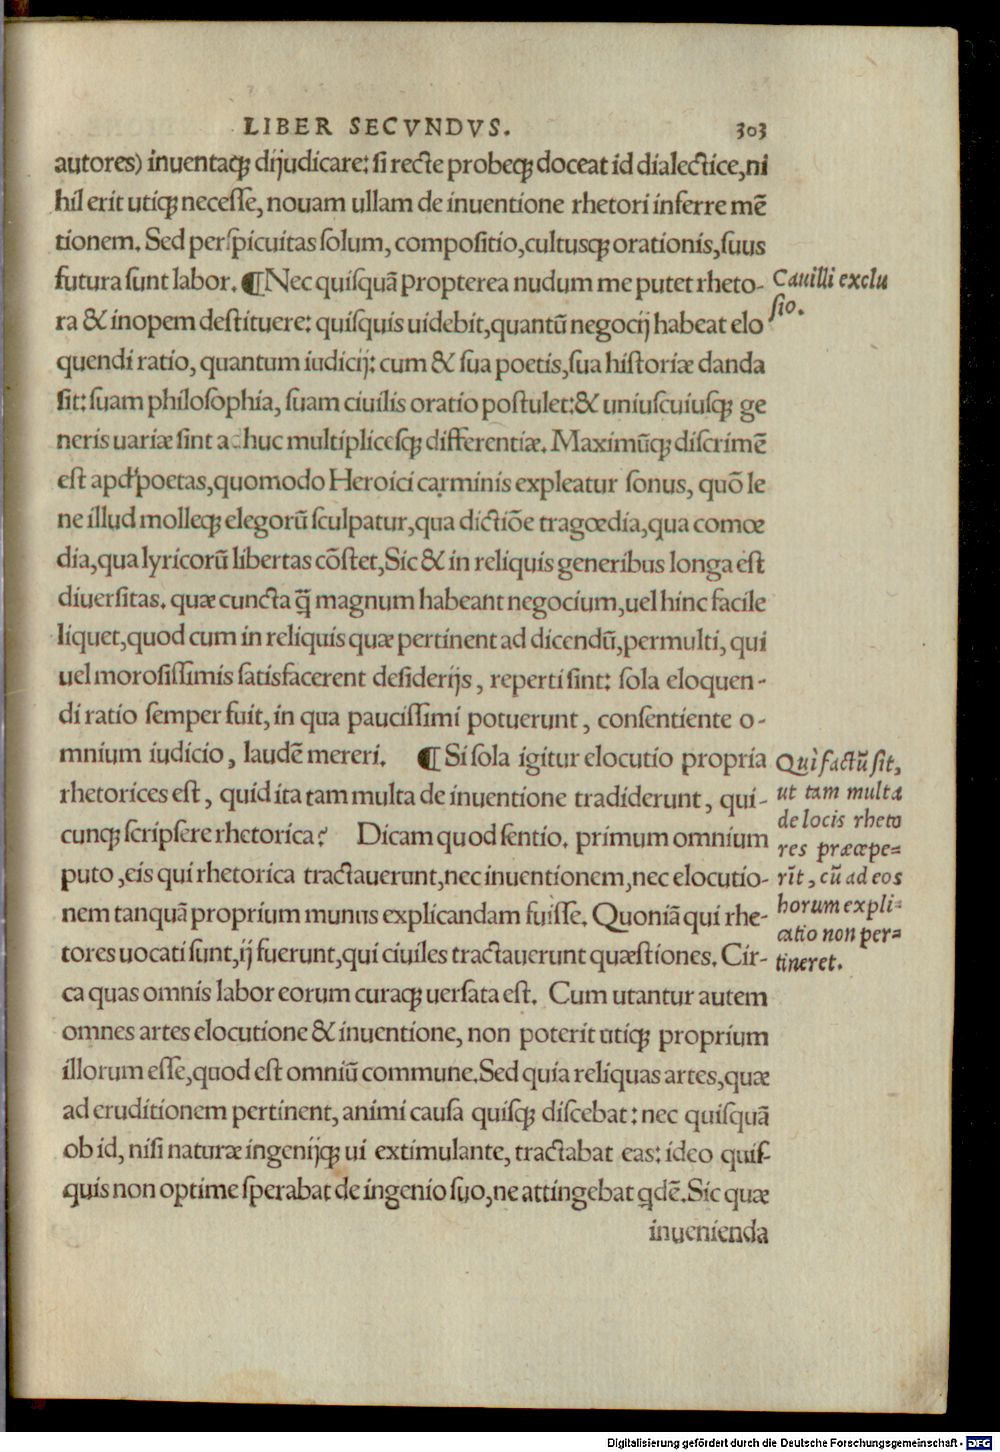 LIBER SECVNDVS. 303
autores) inuentaqꝫ dijudicare: ſi recte probeqꝫ doceat id dialectice, ni
hil erit utiqꝫ neceſſe, nouam ullam de inuentione rhetori inferre mē
tionem. Sed perſpicuitas ſolum, compoſitio, cultusqꝫ orationis, ſuus
futura ſunt labor. ¶ Nec quiſquā propterea nudum me putet rheto-
Cauilli exclu
ra & inopem deſtituere: quiſquis uidebit, quantū negocij habeat elo
ſio.
quendi ratio, quantum iudicij: cum & ſua poetis, ſua hiſtoriæ danda
ſit: ſuam philoſophia, ſuam ciuilis oratio poſtulet: & uniuſcuiuſqꝫ ge
neris uariæ ſint adhuc multipliceſqꝫ differentiæ. Maximūqꝫ diſcrimē
eſt apđ poetas, quomodo Heroici carminis expleatur ſonus, quō le
ne illud molleqꝫ elegorū ſculpatur, qua dictiōe tragœdia, qua comœ
dia, qua lyricorū libertas cōſtet, Sic & in reliquis generibus longa eſt
diuerſitas. quæ cuncta q̄̃ magnum habeant negocium, uel hinc facile
liquet, quod cum in reliquis quæ pertinent ad dicendū, permulti, qui
uel moroſiſſimis ſatisfacerent deſiderijs, reperti ſint: ſola eloquen-
di ratio ſemper fuit, in qua pauciſſimi potuerunt, conſentiente o-
mnium iudicio, laudē mereri. ¶ Si ſola igitur elocutio propria
rhetorices eſt, quid ita tam multa de inuentione tradiderunt, qui-
cunqꝫ ſcripſere rhetorica? Dicam quod ſentio. primum omnium
puto, eis qui rhetorica tractauerunt, nec inuentionem, nec elocutio-
nem tanquā proprium munus explicandam fuiſſe. Quoniā qui rhe-
tores uocati ſunt, ij fuerunt, qui ciuiles tractauerunt quæſtiones. Cir-
Qui factū ſit,
ut tam multa
de locis rheto
res præcepe=
rīt, cū ad eos
horum expli=
catio non per=
tineret.
ca quas omnis labor eorum curaqꝫ uerſata eſt. Cum utantur autem
omnes artes elocutione & inuentione, non poterit utiqꝫ proprium
illorum eſſe, quod eſt omniū commune. Sed quia reliquas artes, quæ
ad eruditionem pertinent, animi cauſa quiſqꝫ diſcebat: nec quiſquā
ob id, niſi naturæ ingenijqꝫ ui extimulante, tractabat eas: ideo quiſ-
quis non optime ſperabat de ingenio ſuo, ne attingebat qdē. Sic quæ
inuenienda
Digitalisierung gefördert durch die Deutsche Forschungsgemeinschaft - DFG